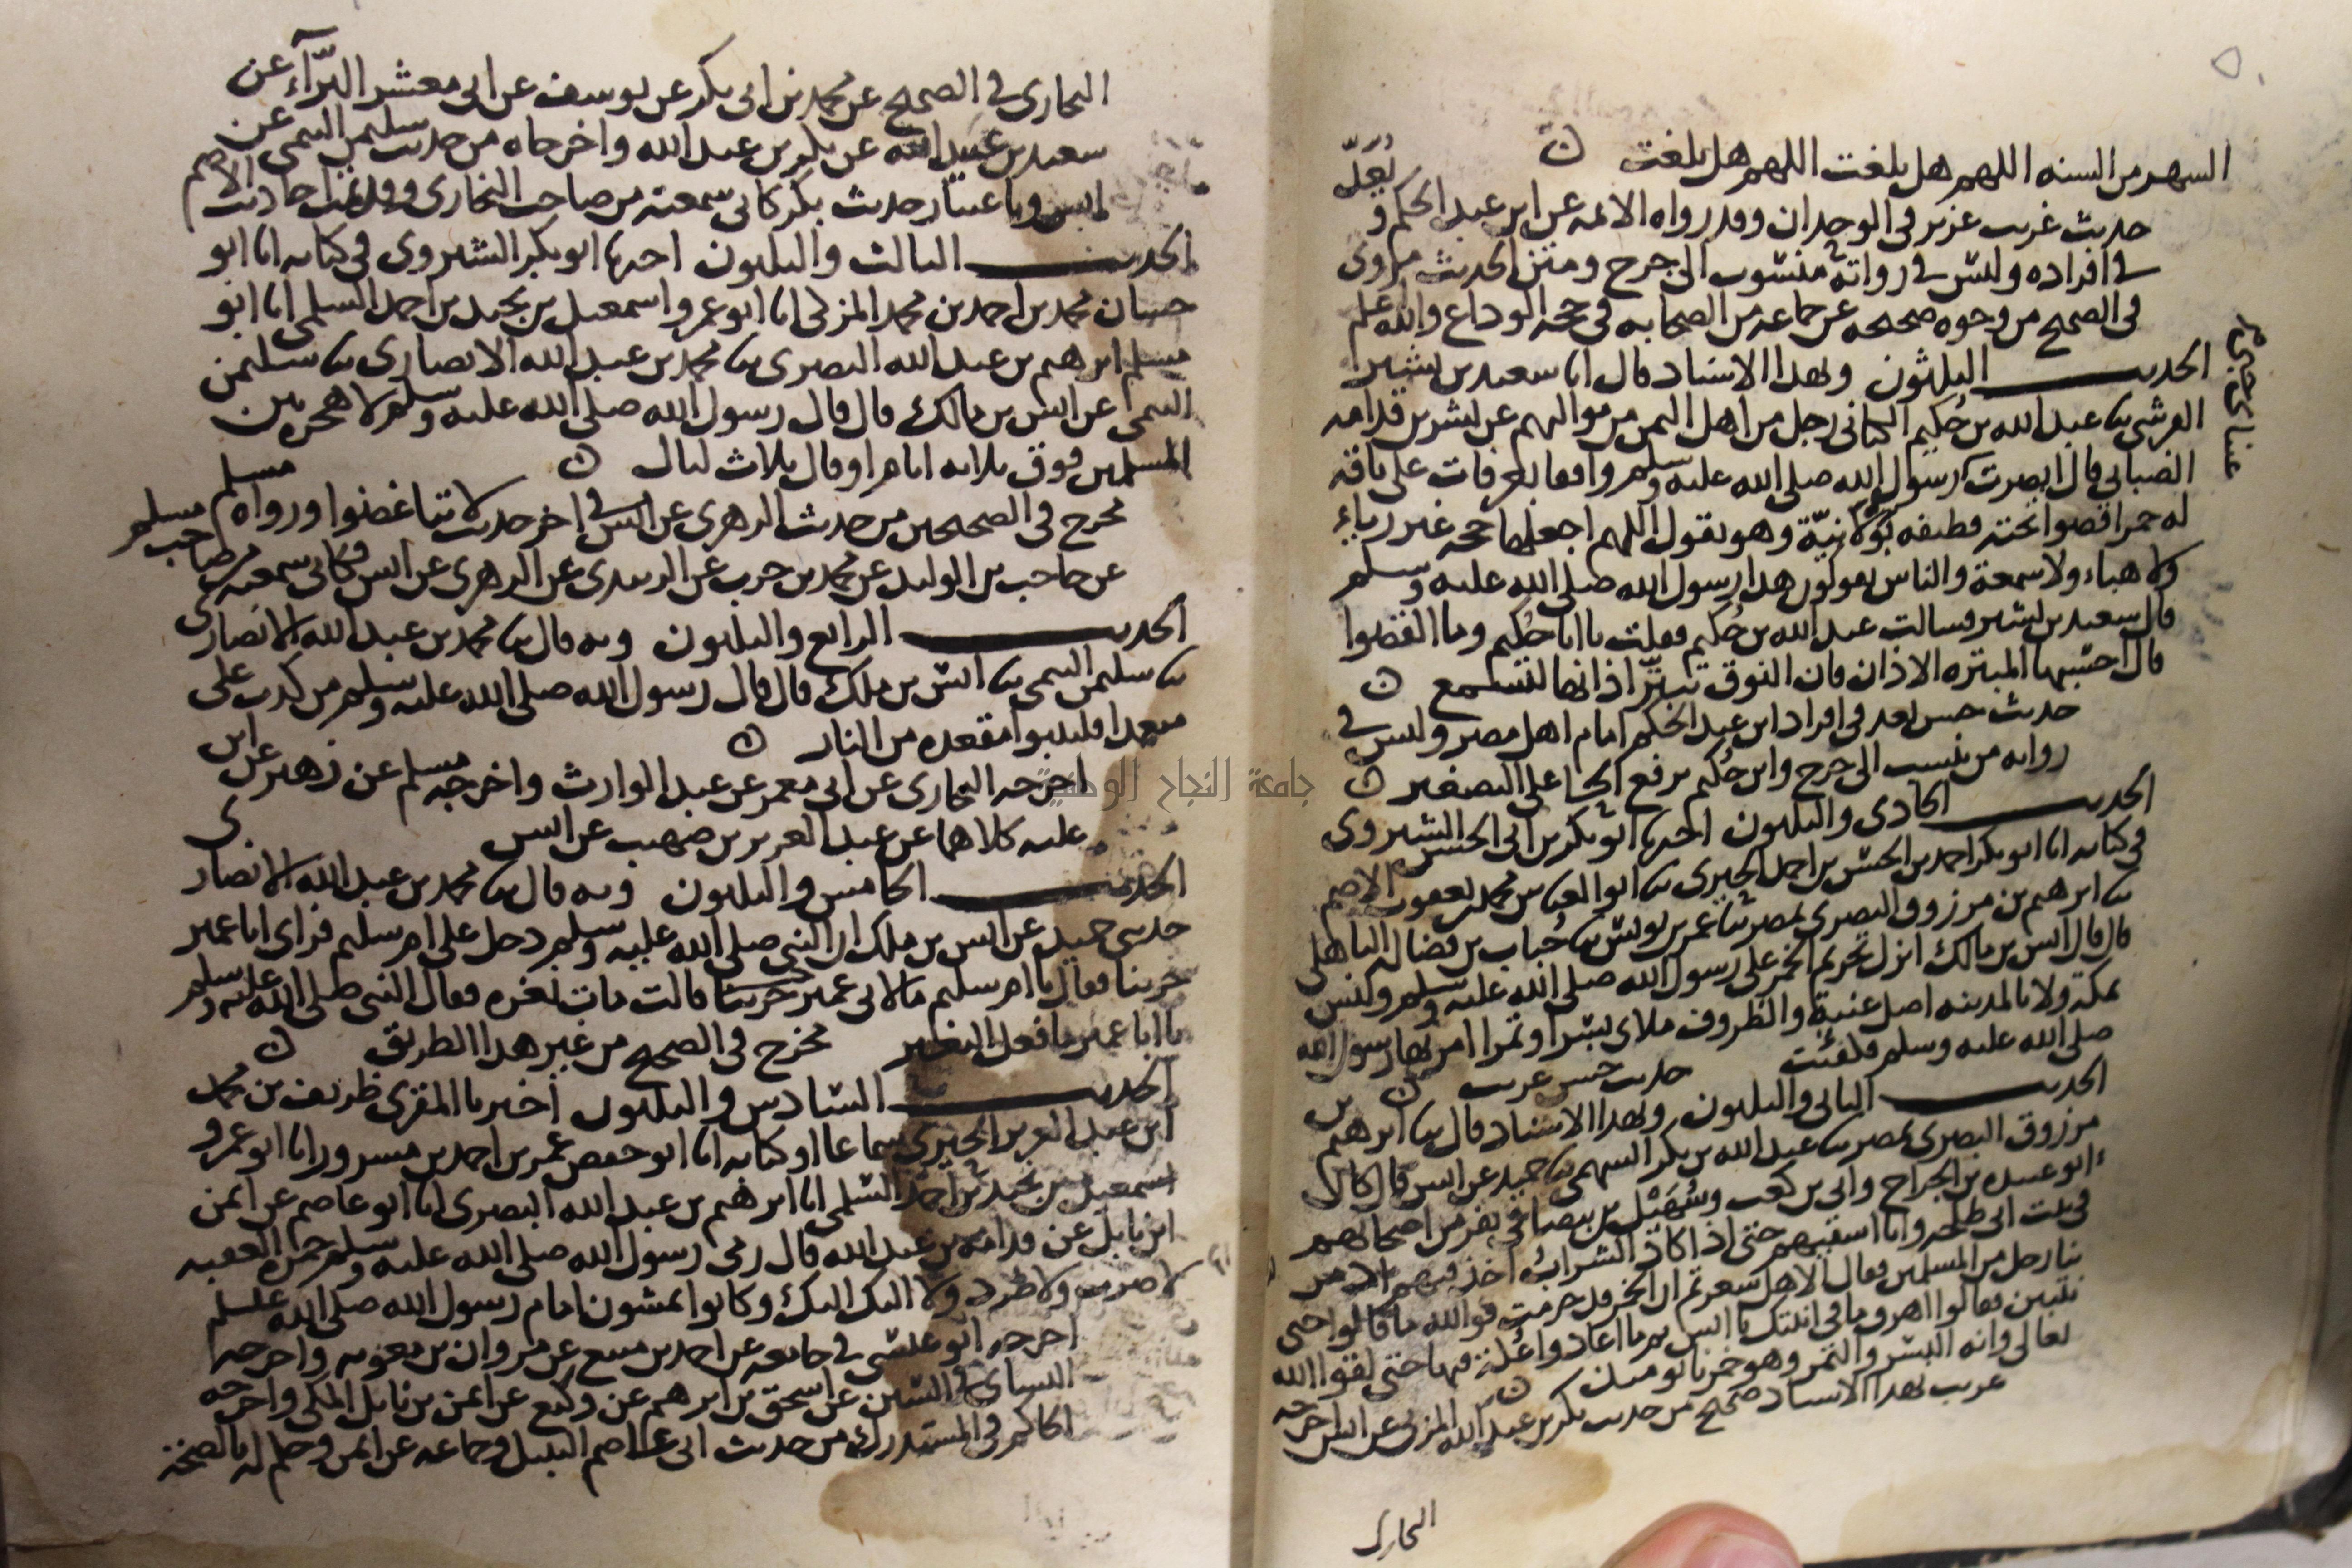 الشهر من السنه اللهم هل بلغت اللهم هل بلغت
حديث غريب عزيز في الوحدان وقد رواه الائمه عن ابن عبد الحكم و يُعَدّ
في افراده وليس في رواته منسوب الى جرح ومتن الحديث مروى
في الصحيح من وجوه صحيحه عن جماعه من الصحابه في حجه الوداع والله اعلم
الحديث الثلثون وبهذا الاسناد قال انا سعيد بن بشير
القرشي ثنا عبد الله بن حُكيم الكناني رجل من اهل اليمن من مواليهم عن بشر بن قدامه
الضبابي قال ابصرت رسول الله صلى الله عليه وسلم واقفا بعرفات على ناقه
له حمرا قصوا تحته قطيفه بَوْلانِيّة وهو يقول اللهم اجعلها حجه غير رياء
ولا هباء ولا سمعة والناس يقولون هذا رسول الله صلى الله عليه وسلم
قال سعيد بن بشير فسالت عبد الله بن حُكيم فقلت يا ابا حُكيم وما القصوا
قال احسبها المبتره الاذان فان النوق تبتر اذانها لتسمع
حديث حسن يعد في افراد ابن عبد الحكم امام اهل مصر وليس في
رواته من ينسب الى جرح وابن حُكيم برفع الحا على التصغير
الحديث الحادى والثلثون اخبرنا ابو بكر بن ابى الحسن الشيروى
في كتابه انا ابو بكر احمد بن الحسن بن احمد الحيرى ثنا ابو العباس محمد بن يعقوب الاصم
ثنا ابرهيم بن مرزوق البصرى بمصر ثنا عمر بن يونس ثنا حُباب بن فضاله الباهلى
قال قال انس بن مالك انزل تحريم الخمر على رسول الله صلى الله عليه وسلم وليس
بمكة ولا بالمدينه اصل عنبة والظروف ملاى بسرا وتمرا امر بها رسول الله
صلى الله عليه وسلم فكفئت حديث حسن غريب
الحديث الثانى والثلثون وبهذا الاسناد قال ثنا ابرهيم بن
مرزوق البصرى بمصر ثنا عبد الله بن بكر السهمى ثنا حميد عن انس قال كان
ابو عبيده بن الجراح وابى بن كعب وسُهَيْل بن بيضا في نفر من اصحابهم
في بيت ابى طلحه وانا اسقيهم حتى اذا كاد الشراب اخذ فيهم
نا رجل من المسلمين فقال الا هل شعرتم ان الخمر قد حرمت فوالله ما قالوا حتى
نتبين فقالوا اهرق ما في انائك يا انس ثم ما عادوا فيها حتى لقوا الله
تعالى وانه البسر والتمر وهو خمرنا يومئذ
غريب بهذا الاسناد صحيح من حديث بكر بن عبد الله المزنى عن انس اخرجه
البخارى
البخارى في الصحيح عن محمد بن ابى بكر عن يوسف عن ابى معشر البرّآء عن
سعيد بن عبيد الله عن بكر بن عبد الله واخرجاه من حديث سليمن التيمى عن
انس وباعتبار حديث بكر كانى سمعته من صاحب البخارى وقد تمت احاديث الاصم
الحديث الثالث والثلثون اخبرنا ابو بكر الشيروى في كتابه انا ابو
حسان محمد بن احمد بن محمد المزكى انا ابو عمرو اسمعيل بن نجيد بن احمد السلمى انا ابو
مسلم ابرهيم بن عبد الله البصرى ثنا محمد بن عبد الله الانصارى ثنا سليمن
التيمى عن انس بن مالك قال قال رسول الله صلى الله عليه وسلم لا هجره بين
المسلمين فوق ثلاثه ايام او قال ثلاث ليال
مخرج في الصحيحين من حديث الزهرى عن انس في اخر حديث لا تباغضوا ورواه مسلم
عن حاجب بن الوليد عن محمد بن حرب عن الزبيدى عن الزهرى عن انس فكانى سمعته من صاحب مسلم
الحديث الرابع والثلثون وبه قال ثنا محمد بن عبد الله الانصارى
ثنا سليمن التيمى ثنا انس بن ملك قال قال رسول الله صلى الله عليه وسلم من كذب على
متعمدا فليتبوا مقعده من النار
اخرجه البخارى عن ابى معمر عن عبد الوارث واخرجه مسلم عن زهير عن ابن
عليه كلاهما عن عبد العزيز بن صهيب عن انس
الحديث الخامس والثلثون وبه قال ثنا محمد بن عبد الله الانصارى
حدثنى حميد عن انس بن ملك ان النبى صلى الله عليه وسلم دخل على ام سليم فراى ابا عمير
حزينا فقال يا ام سليم ما لابى عمير حزينا قالت مات نغره فقال النبى صلى الله عليه وسلم
يا ابا عمير ما فعل النغير مخرج في الصحيح من غير هذا الطريق
الحديث السادس والثلثون اخبرنا المقرى ظريف بن محمد
ابن عبد العزيز الحيرى سماعا او كتابه انا ابو حفص عمر بن احمد بن مسرور انا ابو عمرو
اسمعيل بن نجيد بن احمد السلمى انا ابرهيم بن عبد الله البصرى انا ابو عاصم عن ايمن
ابن نابل عن قدامه بن عبد الله قال رمى رسول الله صلى الله عليه وسلم جمره العقبه
لا ضرب ولا طرد ولا اليك اليك وكانوا يمشون امام رسول الله صلى الله عليه وسلم
اخرجه ابو عيسى في جامعه عن احمد بن منيع عن مروان بن معويه واخرجه
النساى في السنن عن اسحق بن ابرهيم عن وكيع عن ايمن بن نابل المكى واخرجه
الحاكم في المستدرك من حديث ابى عاصم النبيل وجماعه عن ايمن وحكم له بالصحة
جامعة النجاح الوطنية